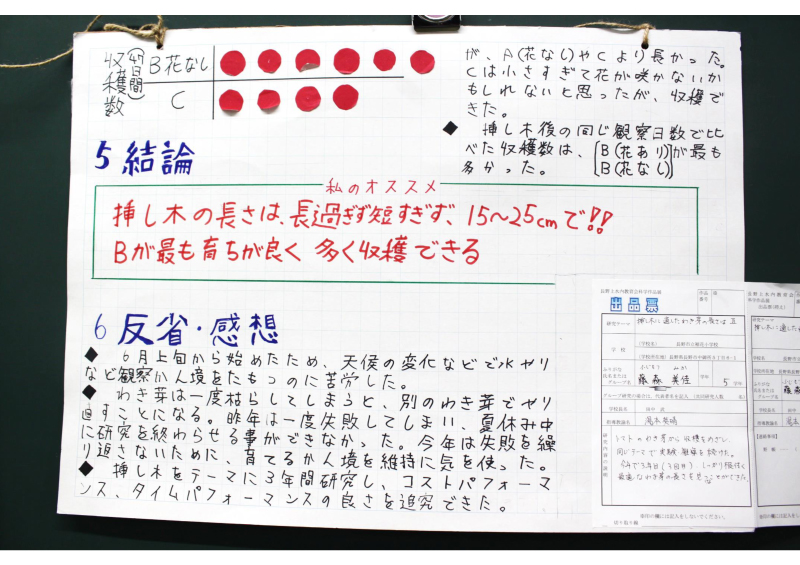 収穫数
(47日間)
B花なし
C
が、A(花なし)やCより長かった。
Cは小さすぎて花が咲かないか
もしれないと思ったが、収穫で
きた。
◆ 挿し木後の同じ観察日数で比
べた収穫数は、[B(花あり) B(花なし)]が最も
多かった。
5 結論
私のオススメ
挿し木の長さは、長過ぎず短すぎず、15〜25cmで!!
Bが最も育ちが良く 多く収穫できる
6 反省・感想
◆ 6月上旬から始めたため、天候の変化などで水やり
など観察か人境をたもつのに苦労した。
◆ わき芽は一度枯らしてしまうと、別のわき芽でやり
直すことになる。昨年は一度失敗してしまい、夏休み中
に研究を終わらせる事ができなかった。今年は失敗を繰
り返さないために、育てるか人境を維持に気を使った。
◆ 挿し木をテーマに3年間研究し、コストパフォーマ
ンス、タイムパフォーマンスの良さを追究できた。
長野上水内教育会科学作品展
出品票
出品番号
研究テーマ
挿し木に適したわき芽の長さは
学校
(学校名)
(学校所在地)
ふりがな
氏名または
グループ名
藤森 美佳
学年
5
学年
学校長名
指導教諭名
研究内容の説明
トマトのわき芽から収穫をめざし、
同じテーマで実験、観察を続けた。
切り取り線